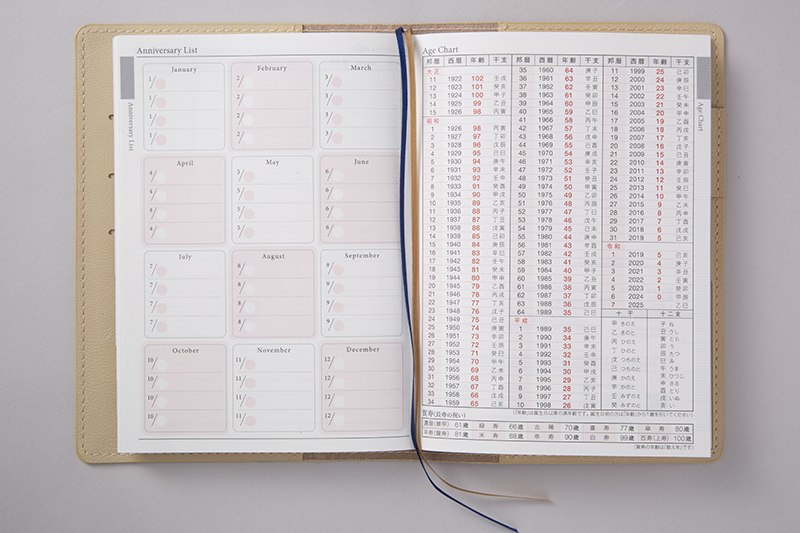 Anniversary List
Anniversary List
January
1/
1/
1/
1/
February
2/
2/
2/
2/
March
3/
3/
3/
3/
April
4/
4/
4/
4/
May
5/
5/
5/
5/
June
6/
6/
6/
6/
July
7/
7/
7/
7/
August
8/
8/
8/
8/
September
9/
9/
9/
9/
October
10/
10/
10/
10/
November
11/
11/
11/
11/
December
12/
12/
12/
12/
Age Chart
Age Chart
邦暦 西暦 年齢 干支
大正
11 1922 102 壬戌
12 1923 101 癸亥
13 1924 100 甲子
14 1925 99 乙丑
15 1926 98 丙寅
昭和
1 1926 98 丙寅
2 1927 97 丁卯
3 1928 96 戊辰
4 1929 95 己巳
5 1930 94 庚午
6 1931 93 辛未
7 1932 92 壬申
8 1933 91 癸酉
9 1934 90 甲戌
10 1935 89 乙亥
11 1936 88 丙子
12 1937 87 丁丑
13 1938 86 戊寅
14 1939 85 己卯
15 1940 84 庚辰
16 1941 83 辛巳
17 1942 82 壬午
18 1943 81 癸未
19 1944 80 甲申
20 1945 79 乙酉
21 1946 78 丙戌
22 1947 77 丁亥
23 1948 76 戊子
24 1949 75 己丑
25 1950 74 庚寅
26 1951 73 辛卯
27 1952 72 壬辰
28 1953 71 癸巳
29 1954 70 甲午
30 1955 69 乙未
31 1956 68 丙申
32 1957 67 丁酉
33 1958 66 戊戌
34 1959 65 己亥
邦暦 西暦 年齢 干支
35 1960 64 庚子
36 1961 63 辛丑
37 1962 62 壬寅
38 1963 61 癸卯
39 1964 60 甲辰
40 1965 59 乙巳
41 1966 58 丙午
42 1967 57 丁未
43 1968 56 戊申
44 1969 55 己酉
45 1970 54 庚戌
46 1971 53 辛亥
47 1972 52 壬子
48 1973 51 癸丑
49 1974 50 甲寅
50 1975 49 乙卯
51 1976 48 丙辰
52 1977 47 丁巳
53 1978 46 戊午
54 1979 45 己未
55 1980 44 庚申
56 1981 43 辛酉
57 1982 42 壬戌
58 1983 41 癸亥
59 1984 40 甲子
60 1985 39 乙丑
61 1986 38 丙寅
62 1987 37 丁卯
63 1988 36 戊辰
64 1989 35 己巳
平成
1 1989 35 己巳
2 1990 34 庚午
3 1991 33 辛未
4 1992 32 壬申
5 1993 31 癸酉
6 1994 30 甲戌
7 1995 29 乙亥
8 1996 28 丙子
9 1997 27 丁丑
10 1998 26 戊寅
邦暦 西暦 年齢 干支
11 1999 25 己卯
12 2000 24 庚辰
13 2001 23 辛巳
14 2002 22 壬午
15 2003 21 癸未
16 2004 20 甲申
17 2005 19 乙酉
18 2006 18 丙戌
19 2007 17 丁亥
20 2008 16 戊子
21 2009 15 己丑
22 2010 14 庚寅
23 2011 13 辛卯
24 2012 12 壬辰
25 2013 11 癸巳
26 2014 10 甲午
27 2015 9 乙未
28 2016 8 丙申
29 2017 7 丁酉
30 2018 6 戊戌
31 2019 5 己亥
令和
1 2019 5 己亥
2 2020 4 庚子
3 2021 3 辛丑
4 2022 2 壬寅
5 2023 1 癸卯
6 2024 0 甲辰
7 2025 乙巳
十干
甲 きのえ
乙 きのと
丙 ひのえ
丁 ひのと
戊 つちのえ
己 つちのと
庚 かのえ
辛 かのと
壬 みずのえ
癸 みずのと
十二支
子 ね
丑 うし
寅 とら
卯 う
辰 たつ
巳 み
午 うま
未 ひつじ
申 さる
酉 とり
戌 いぬ
亥 い
賀寿(長寿の祝い)
(「年齢」は誕生日以降の満年齢です。誕生日以前の方は「年齢」から1歳を引いてください)
還暦(華甲) 61歳 緑寿 66歳 古稀 70歳 喜寿 77歳 傘寿 80歳
半寿(盤寿) 81歳 米寿 88歳 卒寿 90歳 白寿 99歳 百寿(上寿) 100歳
(賀寿の年齢は「数え年」です)